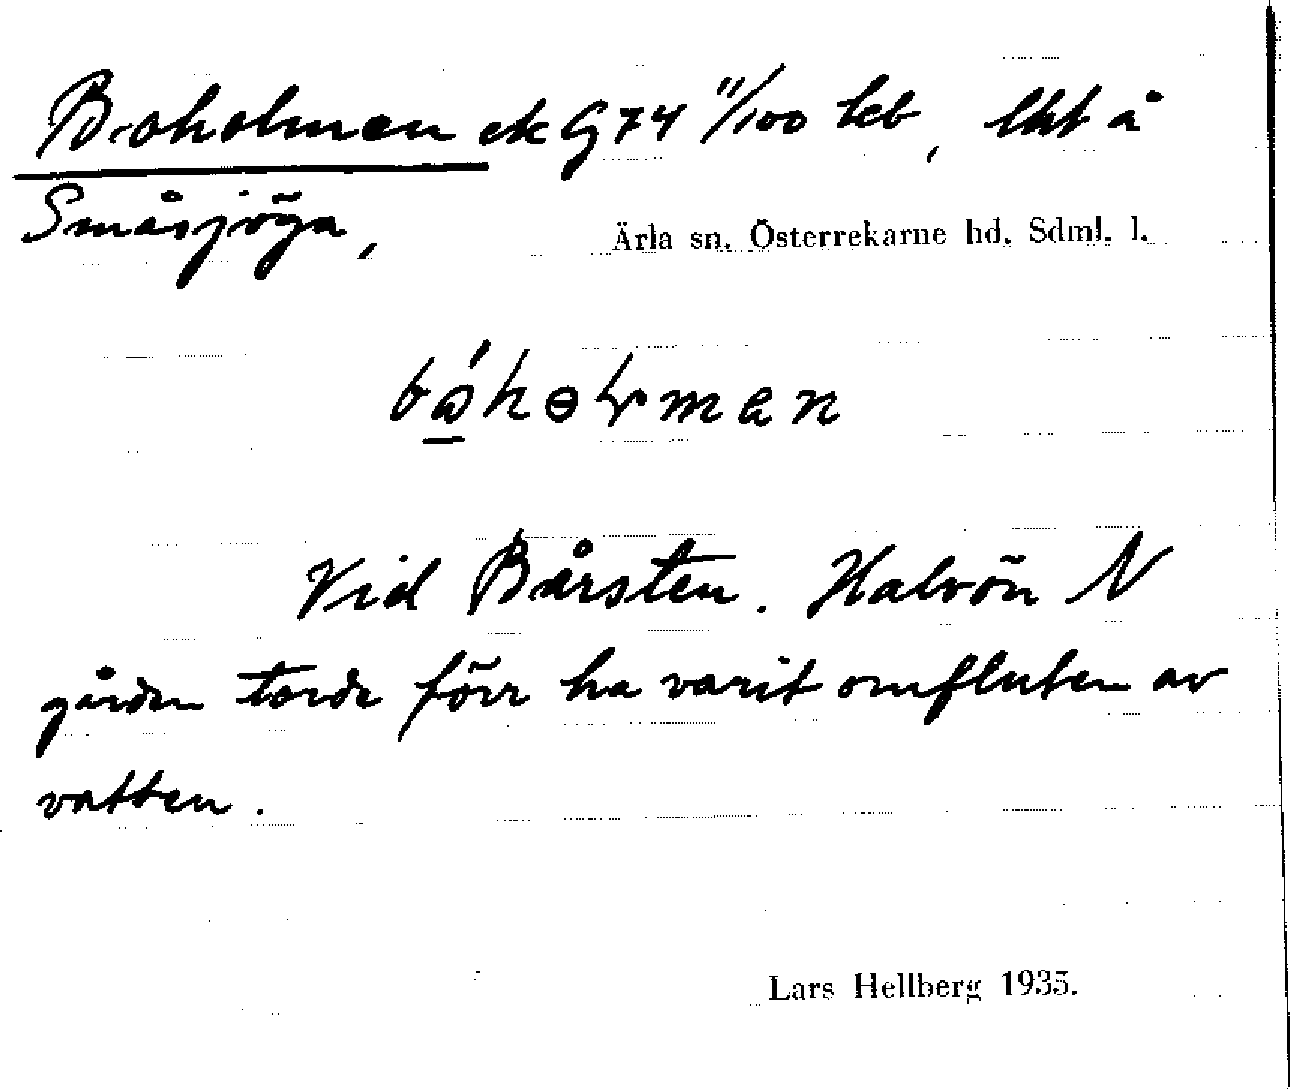 Boholmen ek G 74 11/100 keb, lht å
Småsjöga,
Ärla sn. Österrekarne hd. Sdml. l.
Vid Bårsten. Halvön N
gården torde förr ha varit omfluten av
vatten.
Lars Hellberg 1935.